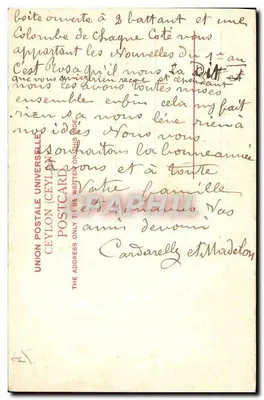 boite ouverte à 2 battant et une
Colombe de chaque Coté nous
apportant les Nouvelles du 1er an
C'est Rosa qu'il nous la Dit et
que vous aviez rien reçu et cependant
nous les avons toutes mises
ensemble enfin cela ny fait
rien sa nous lève rien à
nos idées Nous nous
souhaitons la bonne année
vous et à toute
Votre famille
et Vos
amis
Cardarelly et Madelon
UNION POSTALE UNIVERSELLE
CEYLON (CEYLAN)
POSTCARD
THE ADDRESS ONLY TO BE WRITTEN ON THIS SIDE